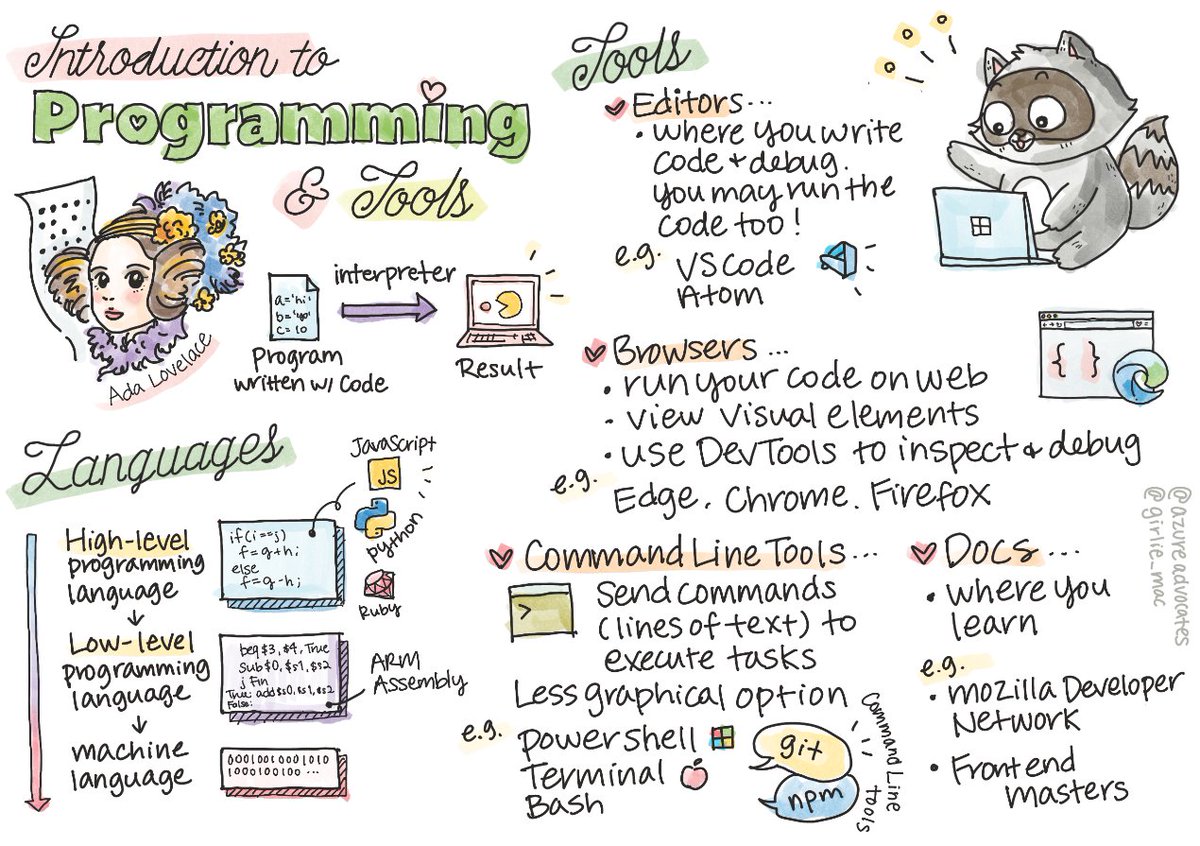 Introduction to
Programming
& Tools
Ada Lovelace
a='hi'
b='yo'
c=10
Program
written w/ Code
interpreter
Result
Languages
High-level
programming
language
if(i==j)
f=g+h;
else
f=g-h;
JavaScript
JS
python
Ruby
Low-level
programming
language
beq $3, $4, True
Sub $0, $s1, $s2
j Fin
True: add $s0, $s1, $s2
False:
ARM
Assembly
machine
language
0001001000101 0
1000100100 ...
Tools
Editors...
• where you write
code + debug.
you may run the
code too!
e.g.
VS code
Atom
Browsers...
• run your code on web
• view visual elements
• use DevTools to inspect & debug
e.g.
Edge, Chrome, Firefox
{ }
Command Line Tools...
>
Send commands
(lines of text) to
execute tasks
Less graphical option
e.g.
powershell
Terminal
Bash
git
npm
Command Line
tools
Docs...
• where you
learn
e.g.
• mozilla Developer
Network
• Frontend
masters
@azureadvocates
@girlie_mac